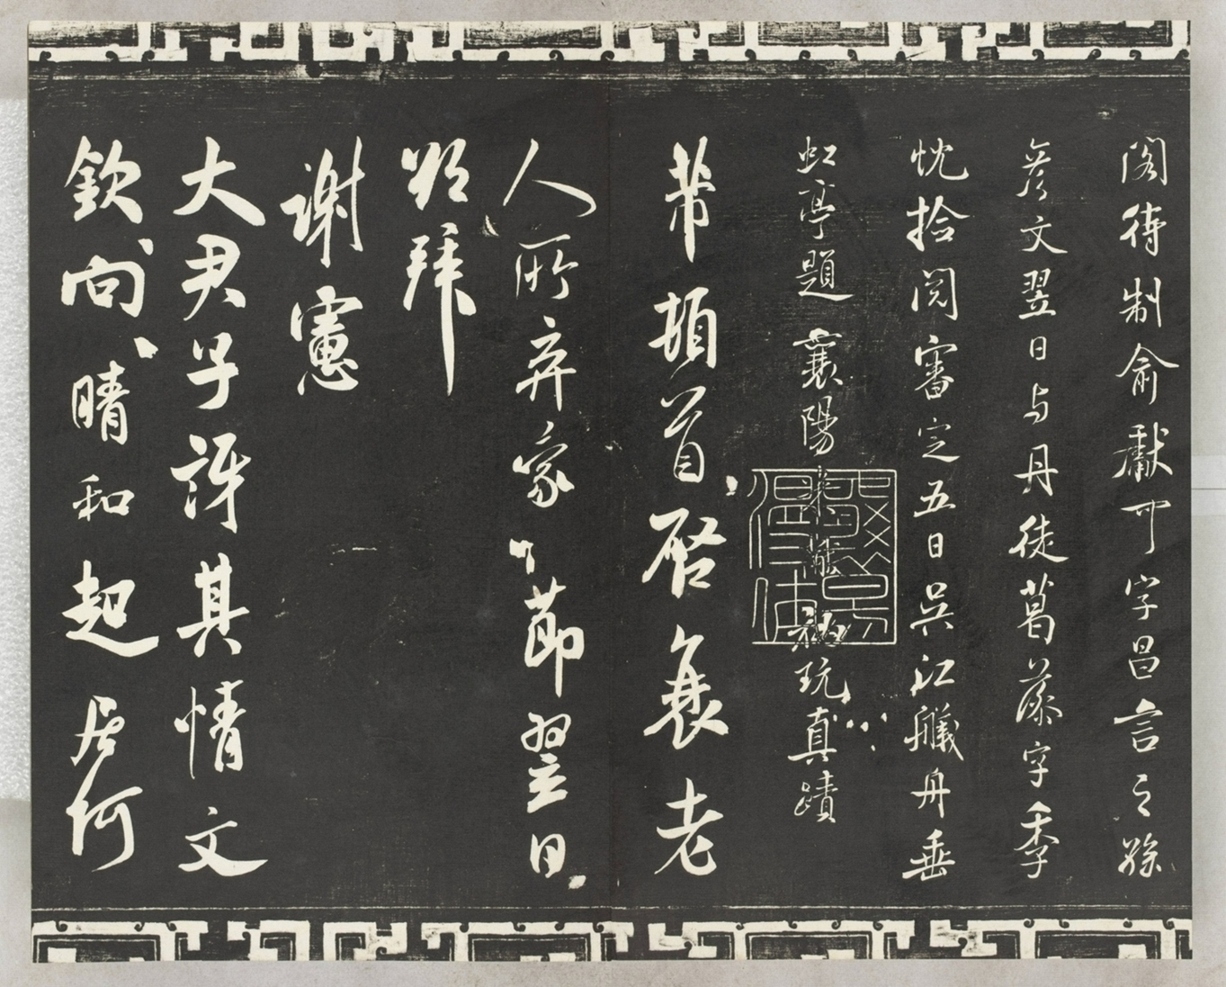 閣待制俞獻可字昌言之孫
彥文翌日与丹徒葛藻字季
忱拾閱審定五日吳江艤舟垂
虹亭題襄陽米黻秘玩真蹟
芾頓首啓衰老
人所弃蒙節翌日
拜
謝憲
大君子訝其情文
欽向晴和起居何